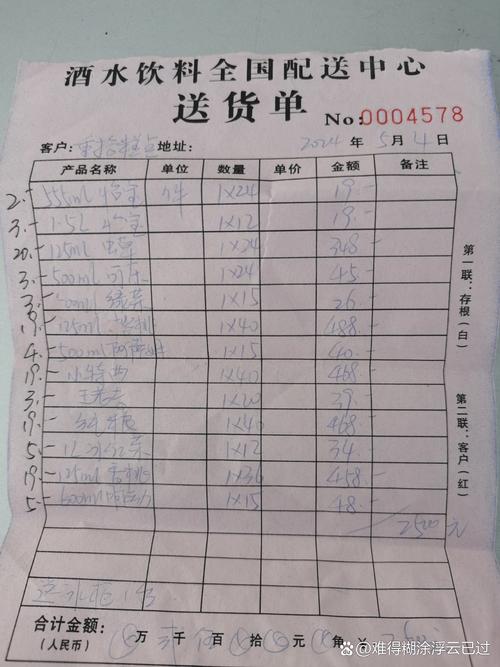 酒水饮料全国配送中心
送货单
No:0004578
客户: 地址: 2024 年 5 月 4 日
产品名称 单位 数量 单价 金额 备注
2.- 555ml 怡宝 件 1×24 19.-
3.- 1.5L 怡宝 1×12 19.-
20.- 125ml 1×24 348.-
3.- 500ml 可乐 1×24 45.-
3.- 500ml 绿茶 1×15 26.-
19.- 125ml 1×40 488.-
4.- 500ml 1×15 40.-
19.- 小特曲 1×40 468.-
3.- 王老吉 1×20 39.-
19.- 1×40 468.-
5.- 1L 冰红茶 1×12 34.-
19.- 125ml 1×36 458.-
5.- 600ml 1×15 48.-
2500元
送冰柜1台
合计金额:
(人民币)
万 千 百 拾 元 角
第一联:存根(白)
第二联:客户(红)
头条 @难得糊涂浮云已过